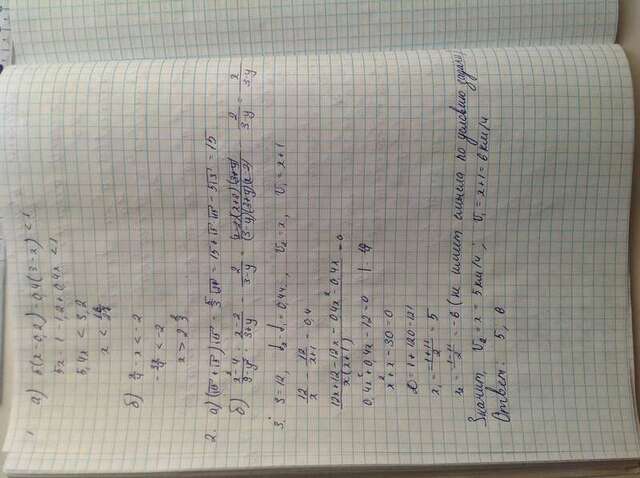 1. а) 5(x-0,2)-0,4(3-x)<1
5x-1-1,2+0,4x<1
5,4x<3,2
x<16/27
б) x/4 - x < -2
-3x/4 < -2
x > 2 2/3
2. а) (√15+√5)√15 - 5/3 √27 = 15+√5·√15-5√3 = 15
б) x²-4/9-y² : x-2/3+y - 2/3-y = (x-2)(x+2)(3+y)/(3-y)(3+y)(x-2) - 2/3-y = x/3-y
3. S=12, t₂-t₁=0,4ч, V₂=x, V₁=x+1
12/x - 12/x+1 = 0,4
12x+12-12x-0,4x²-0,4x/x(x+1) = 0
0,4x²+0,4x-12=0 | · 10/4
x²+x-30=0
D=1+120=121
x₁ = -1+11/2 = 5
x₂ = -1-11/2 = -6 (не имеет смысла по условию задачи)
Значит, V₂=x=5км/ч; V₁=x+1=6км/ч
Ответ: 5, 6